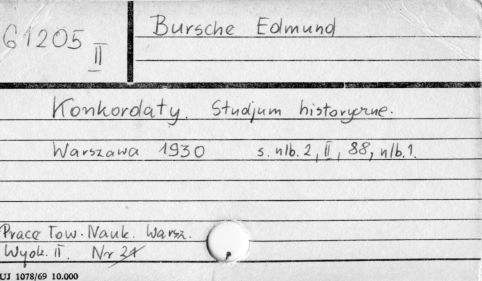 61205 II
Bursche Edmund
Konkordaty. Studjum historyczne.
Warszawa 1930 s. nlb. 2, II, 88, nlb. 1.
Prace Tow. Nauk. Warsz.
Wydz. II. Nr 21
UJ 1078/69 10.000